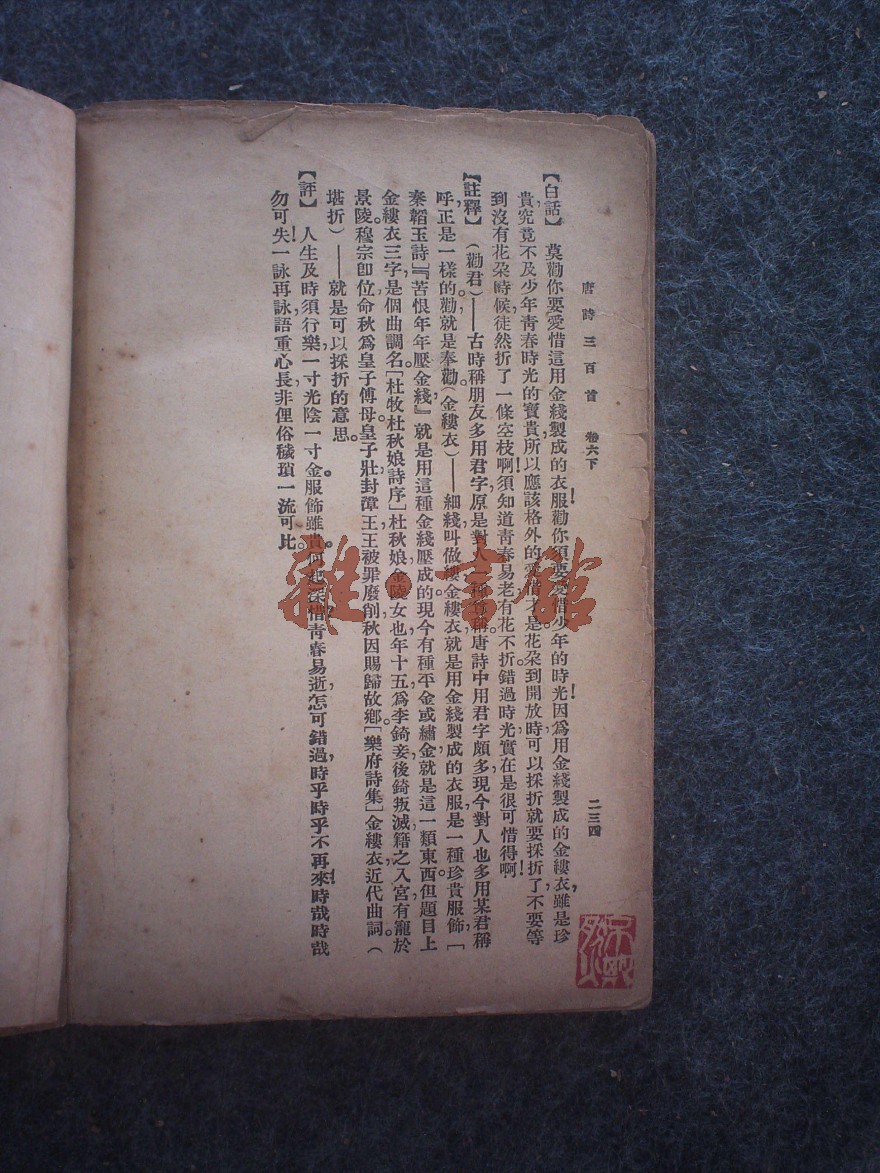 唐詩三百首 卷六下 二三四
【白話】 莫勸你要愛惜這用金綫製成的衣服!勸你須要愛惜少年的時光!因爲用金綫製成的金縷衣,雖是珍
貴,究竟不及少年靑春時光的寶貴!所以應該格外的愛惜才是。花朵到開放時,可以採折就要採折了!不要等
到沒有花朵時候,徒然折了一條空枝啊!須知道靑春易老,有花不折。錯過時光,實在是很可惜得啊!
【註釋】 (勸君)——古時稱朋友多用君字,原是對人一種尊稱。唐詩中用君字頗多,現今對人也多用某君稱
呼,正是一樣的。勸就是奉勸。(金縷衣)——細綫叫做縷。金縷衣就是用金綫製成的衣服,是一種珍貴服飾。[
秦韜玉詩]『苦恨年年壓金綫』就是用這種金綫壓成的,現今有種平金或繡金,就是這一類東西。但題目上
金縷衣三字,是個曲調名。[杜牧杜秋娘詩序]杜秋娘,金陵女也。年十五爲李錡妾,後錡叛滅,籍之入宮,有寵於
景陵。穆宗卽位,命秋爲皇子傅母。皇子壯,封漳王,王被罪廢削,秋因賜歸故鄉。[樂府詩集]金縷衣,近代曲詞。(
堪折)——就是可以採折的意思。
【評】 人生及時須行樂,一寸光陰一寸金。服飾雖貴,何起深惜?靑春易逝,怎可錯過,時乎時乎不再來!時哉時哉
勿可失!一詠再詠,語重心長,非俚俗穢瑣一流可比。
雜·書館